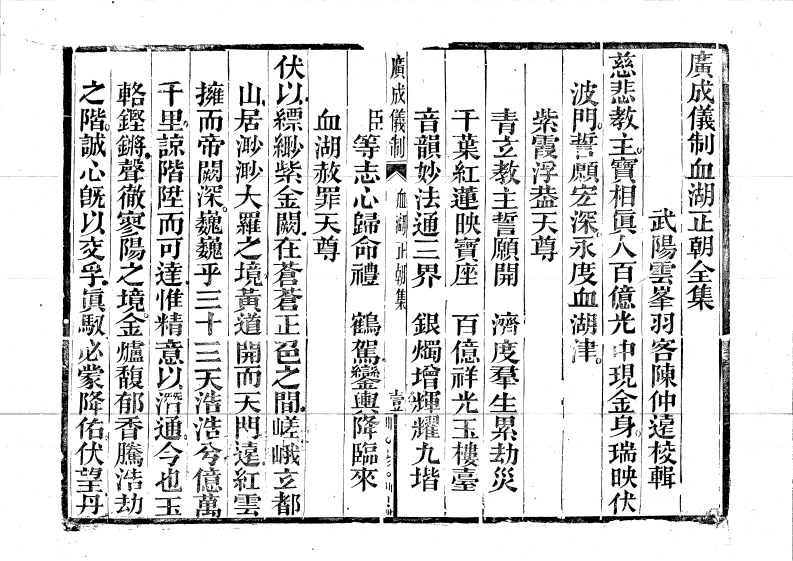 廣成儀制血湖正朝全集
武陽雲峯羽客陳仲遠校輯
慈悲教主寶相眞人百億光中現金身瑞映伏
波門誓願宏深永度血湖津
紫霞浮蓋天尊
青立教主誓願開 濟度羣生累劫災
千葉紅蓮映寶座 百億祥光玉樓臺
音韻妙法通三界 銀燭增輝耀九堦
臣等志心歸命禮 鶴駕鑾輿降臨來
血湖赦罪天尊
廣成儀制 血湖正朝集 壹
伏以縹緲紫金闕在蒼蒼正色之間嵯峨立都
山居渺渺大羅之境黃道開而天門遠紅雲
擁而帝闕深巍巍乎三十三天浩浩兮億萬
千里諒階陞而可達惟精意以潛通今也玉
輅鏗鏘聲徹寥陽之境金爐馥郁香騰浩劫
之階誠心旣以交孚眞馭必蒙降佑伏望丹